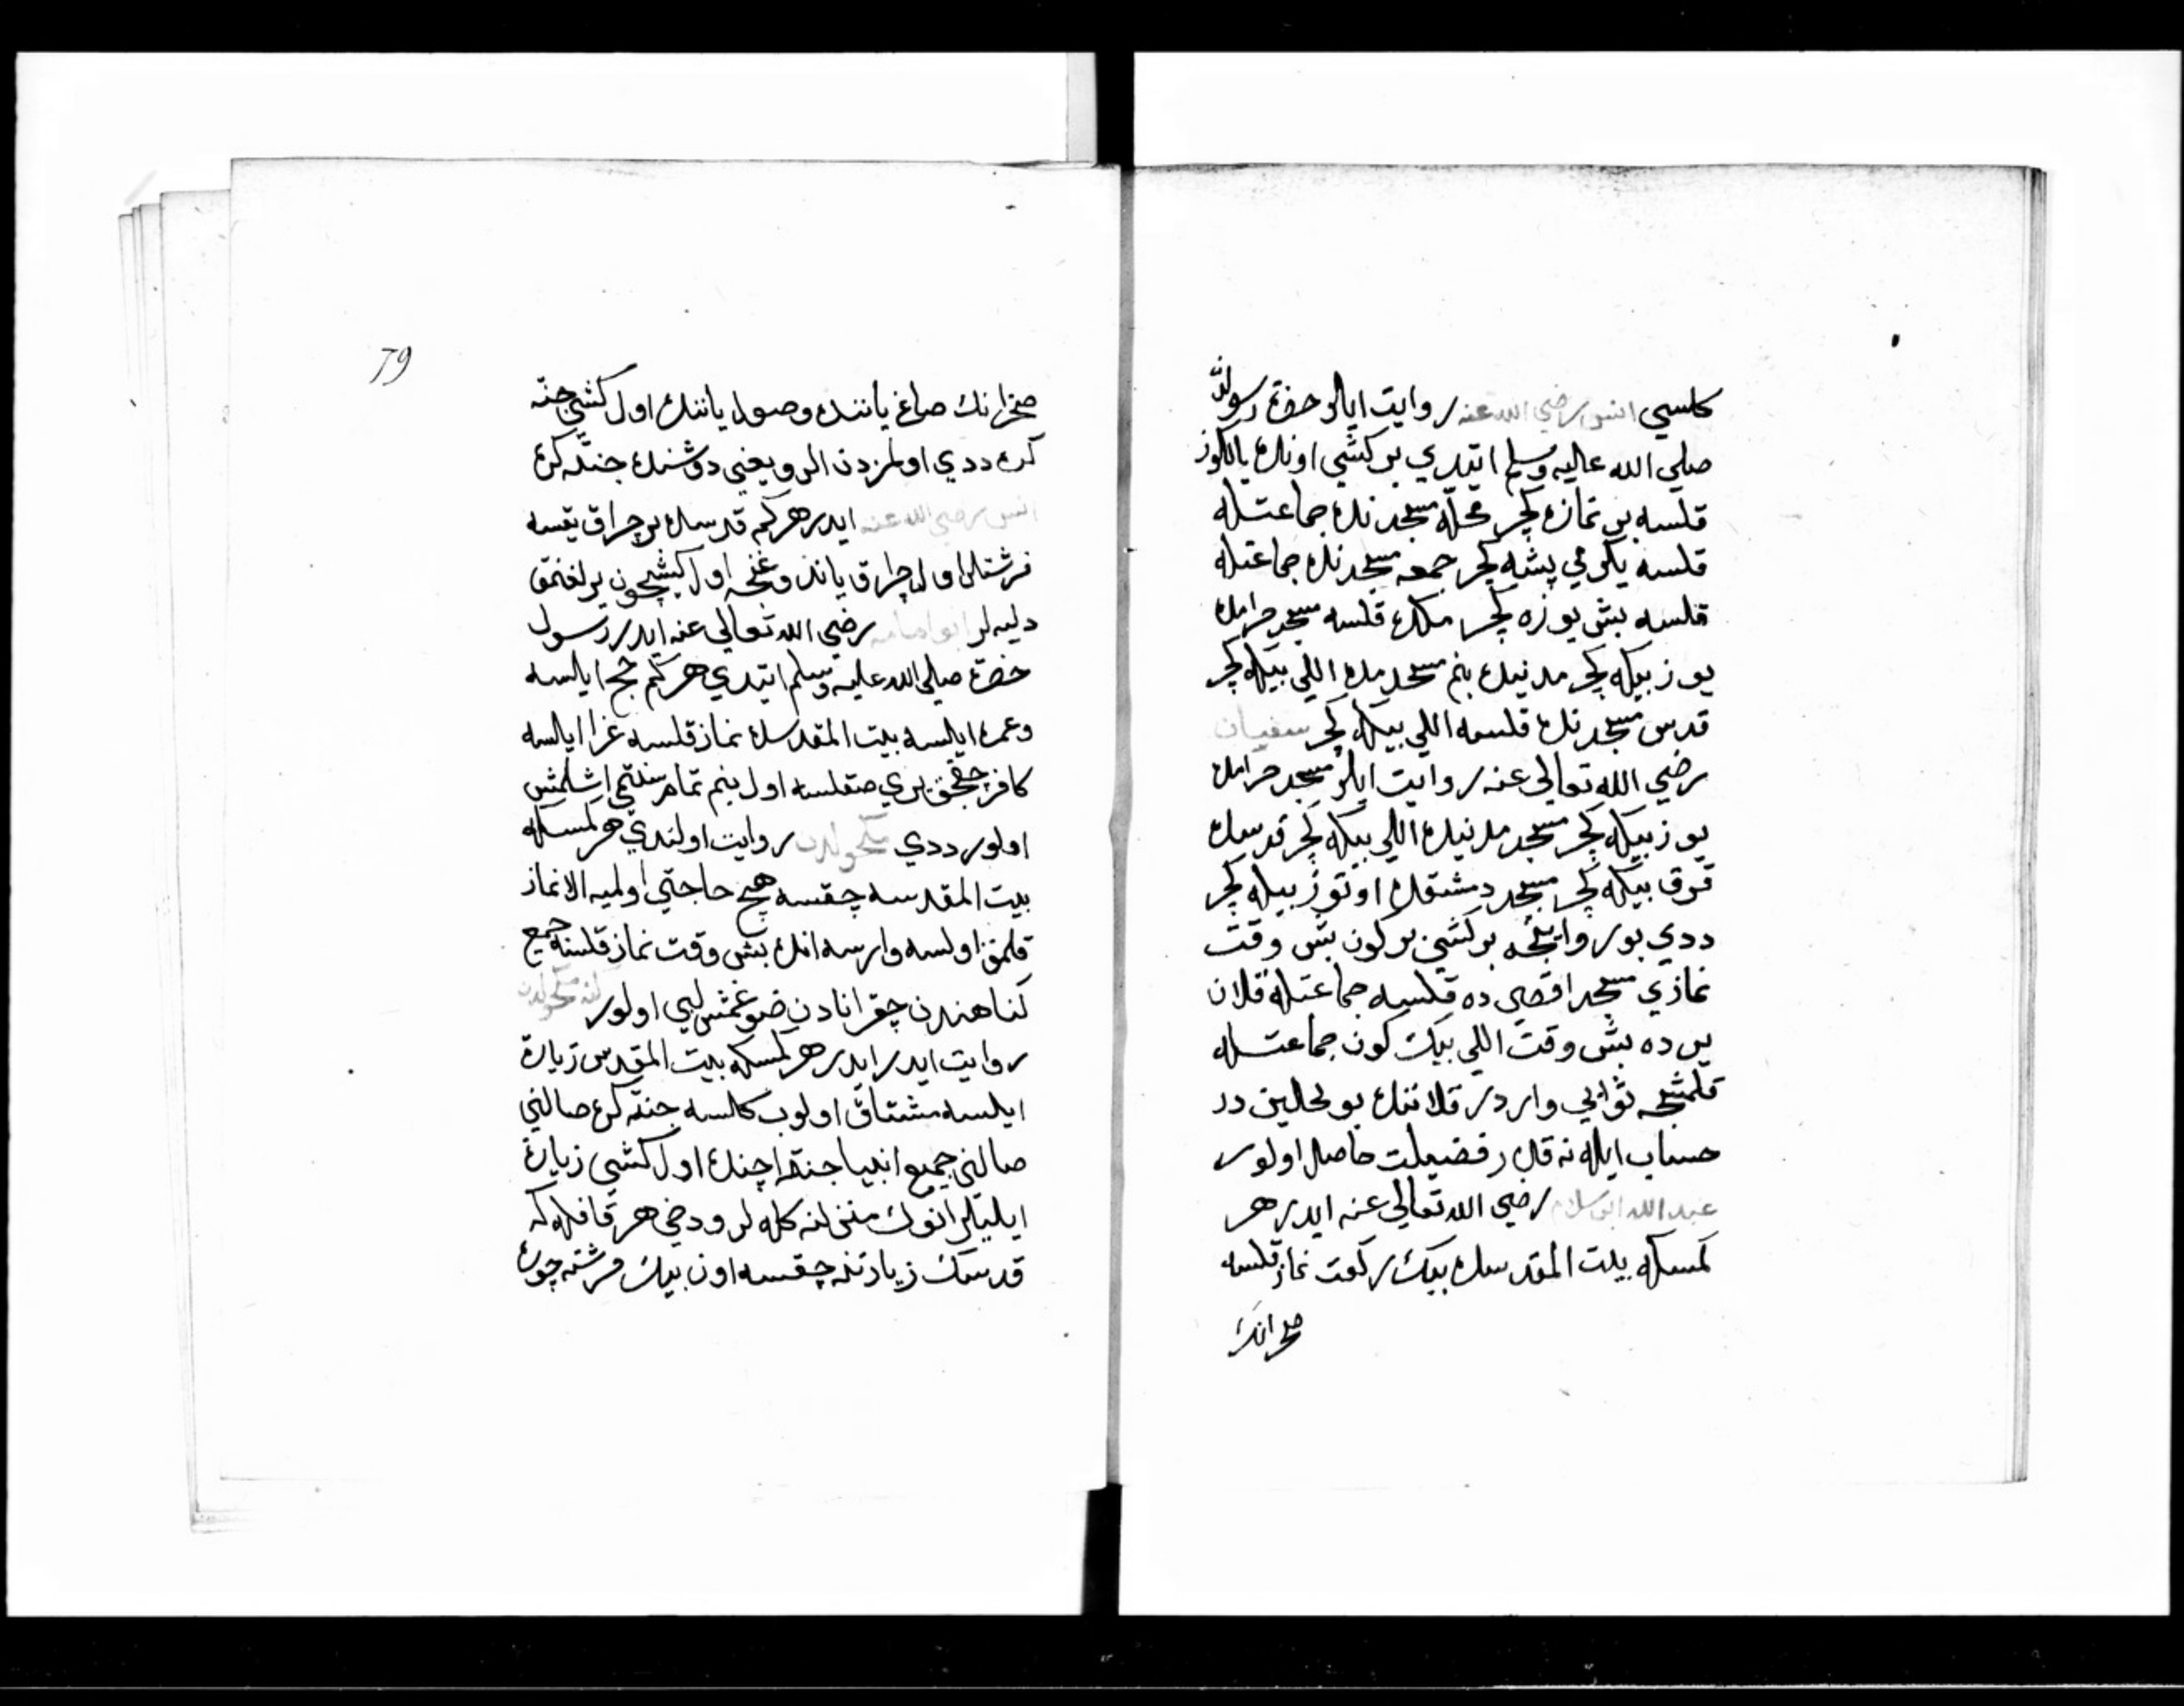 كلسي انس رضي الله عنه روايت ايلر حضرة رسول الله
صلي الله عاليه وسلم ايتدي بر كشي اونده يالكوز
قلسه بر نمازه كچر محله مسجدنده جماعتله
قلسه يكرمي بشه كچر جمعه مسجدنده جماعتله
قلسه بش يوزه كچر مكده قلسه مسجد حرامده
يوز بيكه كچر مدنيده بنم مسجدمده اللي بيكه كچر
قدس مسجدنده قلسه اللي بيكه كچر سفيان
رضي الله تعالي عنه روايت ايلر مسجد حرامده
يوز بيكه كچر مسجد مدنيده اللي بيكه كچر قدسده
قرق بيكه كچر مسجد دمشقده اوتوز بيكه كچر
ددي بو روايتجه بر كشي بر كون بش وقت
نمازي مسجد اقصي ده قلسه جماعتله قلان
يرده بش وقت اللي بيك كون جماعتله
قلمشجه ثوابي واردر قلاننك بو لحالين در
حساب ايله نه قدر فضيلت حاصل اولور
عبد الله ابن سلام رضي الله تعالي عنه ايدر هر
كمسكه بيت المقدسده بيك ركعت نماز قلسه
صخرانك
79
صخرانك صاغ ياننده وصول ياننده اول كشي جنته
كره ددي اولمزدن الرو يعني دوشنده جنته كره
انس رضي الله عنه ايدر هر كم قدسده بر چراق يقسه
فرشتلر اول چراق ياندوغنجه اول كيشيچون يرلغنمق
دليه لر ابو امامه رضي الله تعالي عنه ايدر رسول
حضرة صلي الله عليه وسلم ايتدي هر كم حج ايلسه
وعمره ايلسه بيت المقدسده نماز قلسه غزا ايلسه
كافر چقجق يري صقلسه اول بنم تمام سنتمي اشلمش
اولور ددي مكحولدن روايت اولندي هر كمسكه
بيت المقدسه چقسه هيچ حاجتي اولميه الا نماز
قلمق اولسه وارسه انده بش وقت نماز قلسه جميع
كناهندن چقر انادن ضوغمش كبي اولور كنه مكحولدن
روايت ايدر ايدر هر كمسكه بيت المقدس زيارة
ايلسه مشتاق اولوب كلسه جنته كره صالني
صالني جميع انبيا جنت ايچنده اول كشي زيارة
ايليلر انوك منزلنه كله لر ودخي هر قافله كه
قدسك زيارتنه چقسه اون بيك فرشته چوره